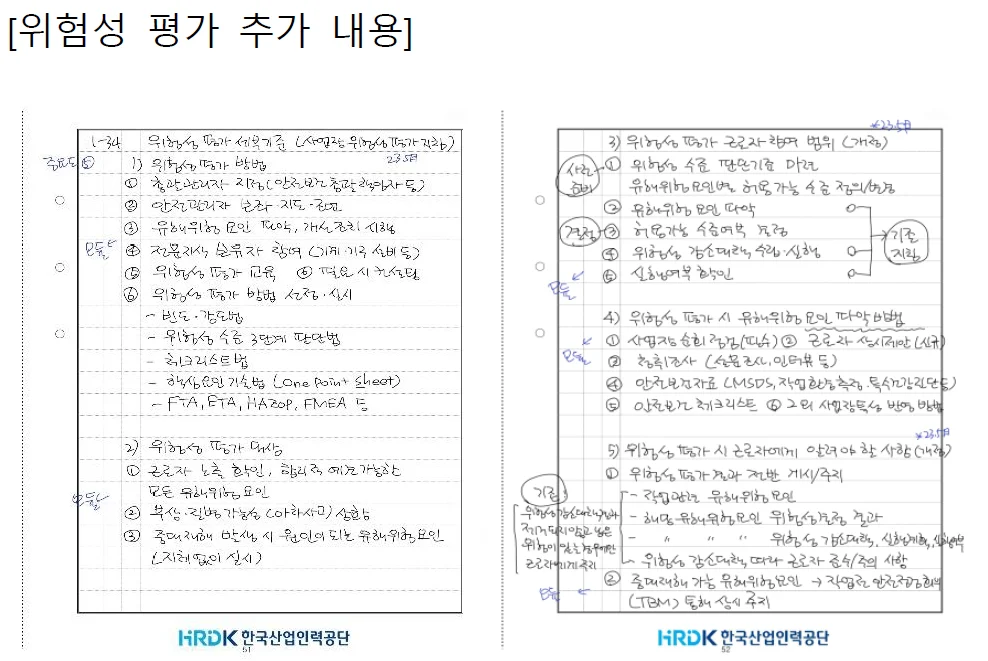 [위험성 평가 추가 내용]
1-34 위험성 평가 세부기준 (사업장 위험성평가 지침)
23.5月
중요도 ⑤ 1) 위험성 평가 방법
① 총괄관리자 지정(안전보건총괄책임자 등)
② 안전관리자 보좌·지도·조언
③ 유해위험 요인 파악, 개선조치 시행
④ 전문지식 보유자 참여 (기계·기구 설비 등)
⑤ 위험성 평가 교육 ⑥ 필요시 컨설팅
⑥ 위험성 평가 방법 선정·실시
- 빈도·강도법
- 위험성 수준 3단계 판단법
- 체크리스트법
- 핵심요인 기술법 (One Point Sheet)
- FTA, ETA, HAZOP, FMEA 등
2) 위험성 평가 대상
① 근로자 노출 확인, 합리적 예견가능한
모든 유해위험 요인
② 부상·질병 가능성 (아차사고) 상황
③ 중대재해 발생 시 원인이 되는 유해위험요인
(지체없이 실시)
HRDK 한국산업인력공단
51
*23.5月
3) 위험성 평가 근로자 참여 범위 (개정)
사전준비 ① 위험성 수준 판단기준 마련
유해위험 요인별 허용가능 수준 정의/변경
② 유해위험 요인 파악
결정 ③ 허용가능 수준여부 결정
④ 위험성 감소대책 수립·실행
⑤ 실행여부 확인
기존 지침
4) 위험성 평가 시 유해위험 요인 파악 방법
① 사업장 순회점검(필수) ② 근로자 상시제안 (신규)
③ 청취조사 (설문조사, 인터뷰 등)
④ 안전보건자료 (MSDS, 작업환경측정, 특수건강진단 등)
⑤ 안전보건 체크리스트 ⑥ 그외 사업장특성 반영 방법
*23.5月
5) 위험성 평가 시 근로자에게 알려야 할 사항 (개정)
① 위험성 평가 결과 전반 게시/주지
- 작업관련 유해위험요인
- 해당 유해위험요인 위험성결정 결과
- 〃 〃 〃 위험성 감소대책, 실행계획, 실행여부
- 위험성 감소대책 따라 근로자 준수/주의 사항
② 중대재해 가능 유해위험요인 → 작업전 안전점검회의
(TBM) 통해 상시 주지
기존
위험성 감소대책 결과
제거되지 않고 남은
위험이 있는 경우에만
근로자에게 주지
HRDK 한국산업인력공단
52